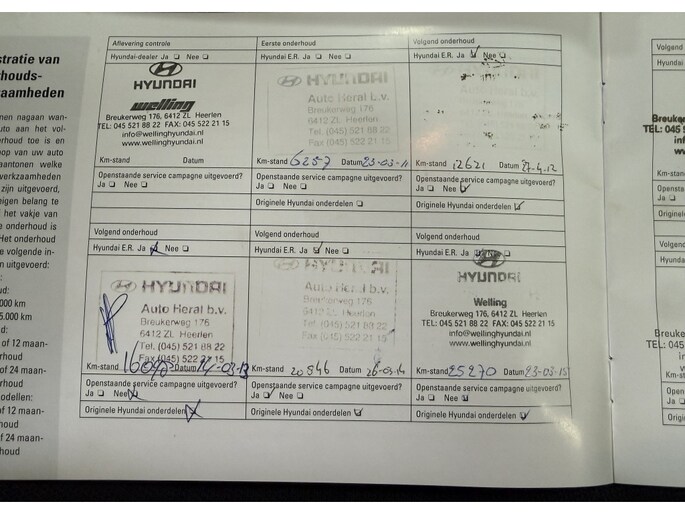 stratie van
rhouds-
zaamheden
nen nagaan wan-
auto aan het vol-
rhoud toe is en
oop van uw auto
aantonen welke
werkzaamheden
zijn uitgevoerd,
eigen belang te
het vakje van
e onderhoud is
Het onderhoud
e volgende in-
en uitgevoerd:
000 km
5.000 km
of 12 maan-
erhoud
of 24 maan-
erhoud
odellen:
of 12 maan-
erhoud
of 24 maan-
erhoud
Aflevering controle
Hyundai-dealer Ja Nee
HYUNDAI
welling
Breukerweg 176, 6412 ZL Heerlen
TEL: 045 521 88 22 FAX: 045 522 21 15
info@wellinghyundai.nl
www.wellinghyundai.nl
Km-stand Datum
Openstaande service campagne uitgevoerd?
Ja Nee
Eerste onderhoud
Hyundai E.R. Ja Nee
HYUNDAI
Auto Heral b.v.
Breukerweg 176
6412 ZL Heerlen
Tel. (045) 521 88 22
Fax (045) 522 21 15
Km-stand 6257 Datum 25-03-11
Openstaande service campagne uitgevoerd?
Ja Nee
Originele Hyundai onderdelen
Volgend onderhoud
Hyundai E.R. Ja Nee
Km-stand 12621 Datum 27-4-12
Openstaande service campagne uitgevoerd?
Ja Nee
Originele Hyundai onderdelen
Volgend onderhoud
Hyundai E.R. Ja Nee
HYUNDAI
Auto Heral b.v.
Breukerweg 176
6412 ZL Heerlen
Tel. (045) 521 88 22
Fax (045) 522 21 15
Km-stand Datum 14-03-13
Openstaande service campagne uitgevoerd?
Ja Nee
Originele Hyundai onderdelen
Volgend onderhoud
Hyundai E.R. Ja Nee
HYUNDAI
Auto Heral b.v.
Breukerweg 176
6412 ZL Heerlen
Tel. (045) 521 88 22
Fax (045) 522 21 15
Km-stand 20546 Datum 26-03-14
Openstaande service campagne uitgevoerd?
Ja Nee
Originele Hyundai onderdelen
Volgend onderhoud
Hyundai E.R. Ja Nee
HYUNDAI
Welling
Breukerweg 176, 6412 ZL Heerlen
TEL: 045 521 88 22 FAX: 045 522 21 15
info@wellinghyundai.nl
www.wellinghyundai.nl
Km-stand 25270 Datum 23-03-15
Openstaande service campagne uitgevoerd?
Ja Nee
Originele Hyundai onderdelen
Volgend
Hyundai E.R.
Breukerw
TEL: 045 521
inf
ww
Km-stand
Openstaande
Ja
Originele Hy
Volgend ond
Hyundai E.R.
Breukerw
TEL: 045 521
Km-stand
Openstaande
Ja
Originele Hy